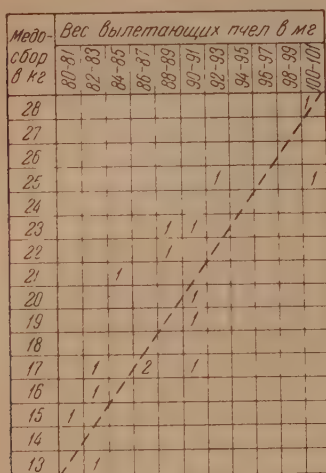 Медо-сбор в кг Вес вылетающих пчел в мг
80-81 82-83 84-85 86-87 88-89 90-91 92-93 94-95 96-97 98-99 100-101
28 1
27
26
25 1 1
24
23 1 1
22 1
21 1
20 1
19 1
18
17 1 2 1
16 1
15 1
14
13 1